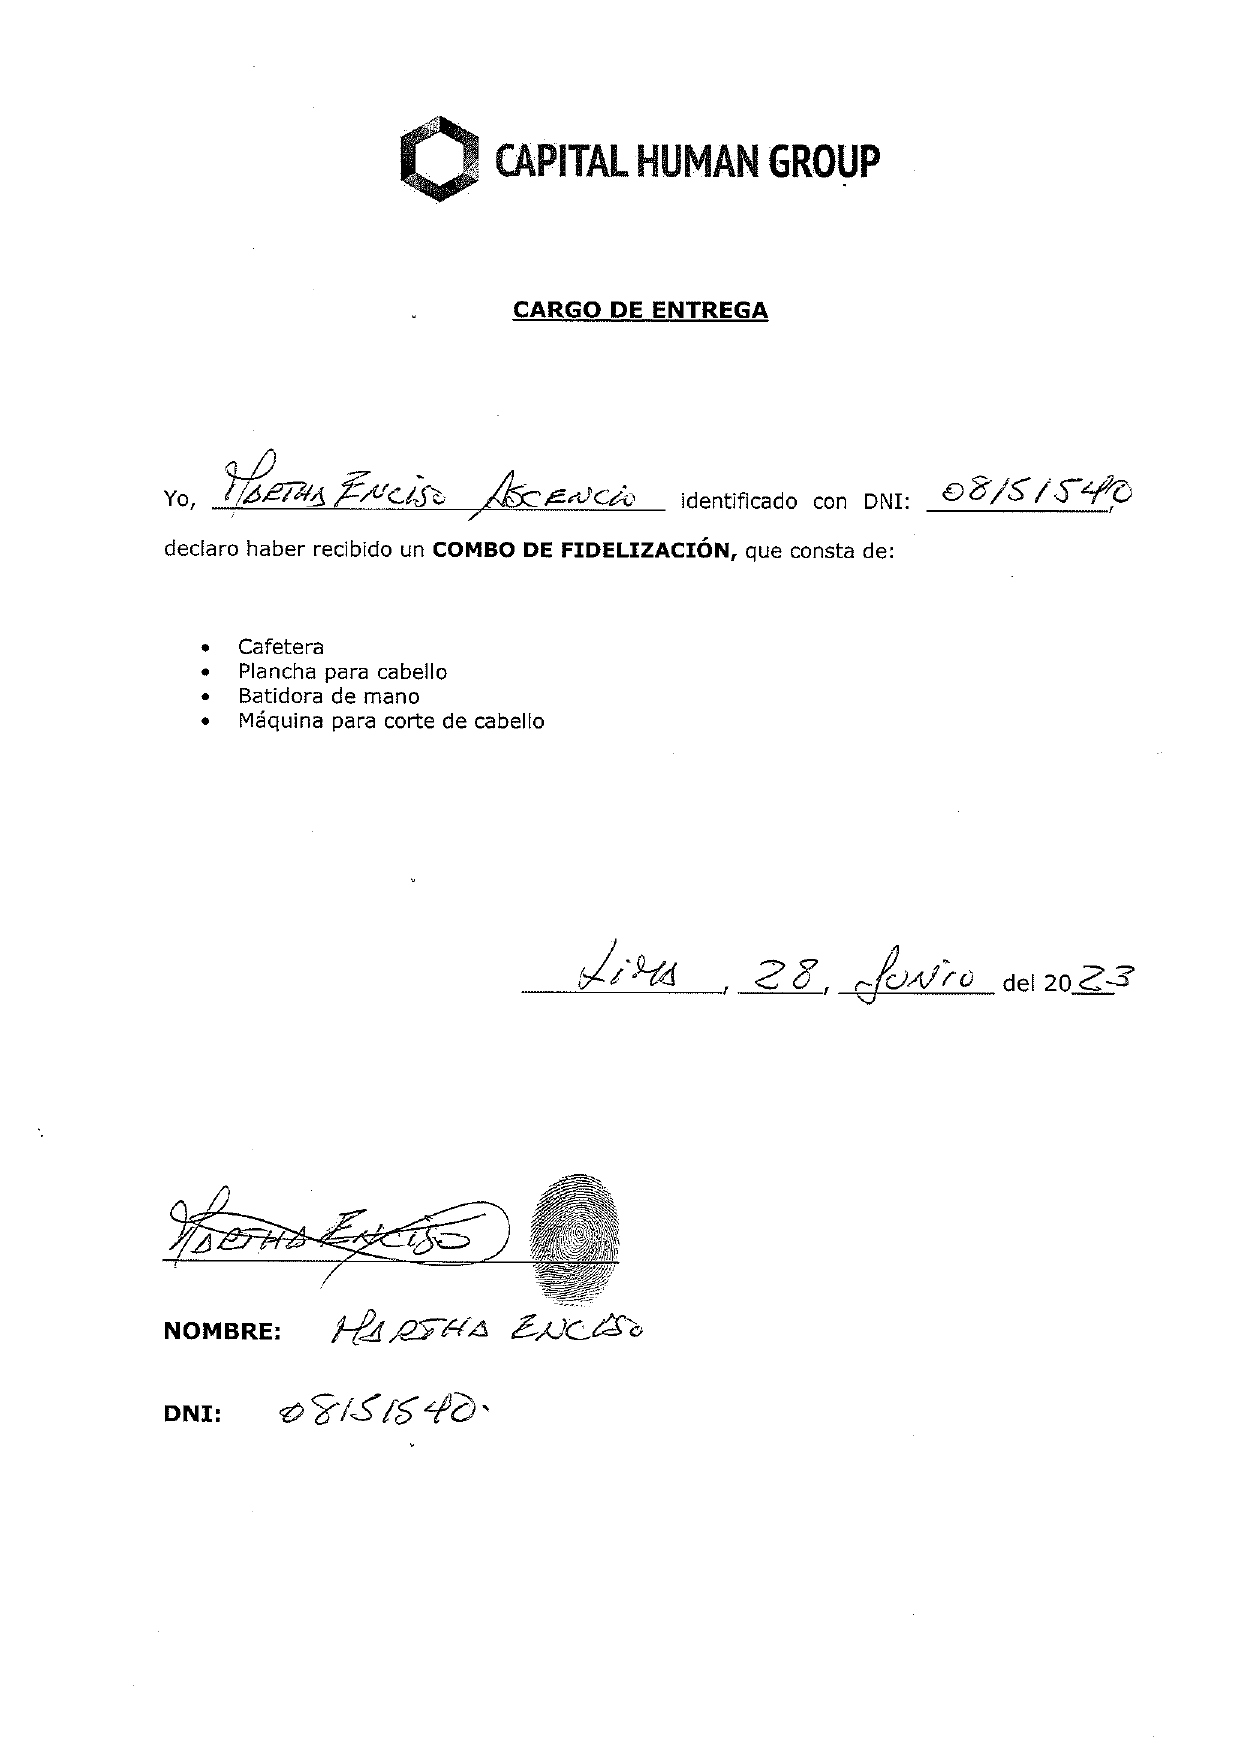 CAPITAL HUMAN GROUP
CARGO DE ENTREGA
Yo, MARTHA ENCISO ASCENCIO identificado con DNI: 08151540,
declaro haber recibido un COMBO DE FIDELIZACIÓN, que consta de:
• Cafetera
• Plancha para cabello
• Batidora de mano
• Máquina para corte de cabello
LIMA, 28, JUNIO del 2023
MARTHA ENCISO
NOMBRE: MARTHA ENCISO
DNI: 08151540.